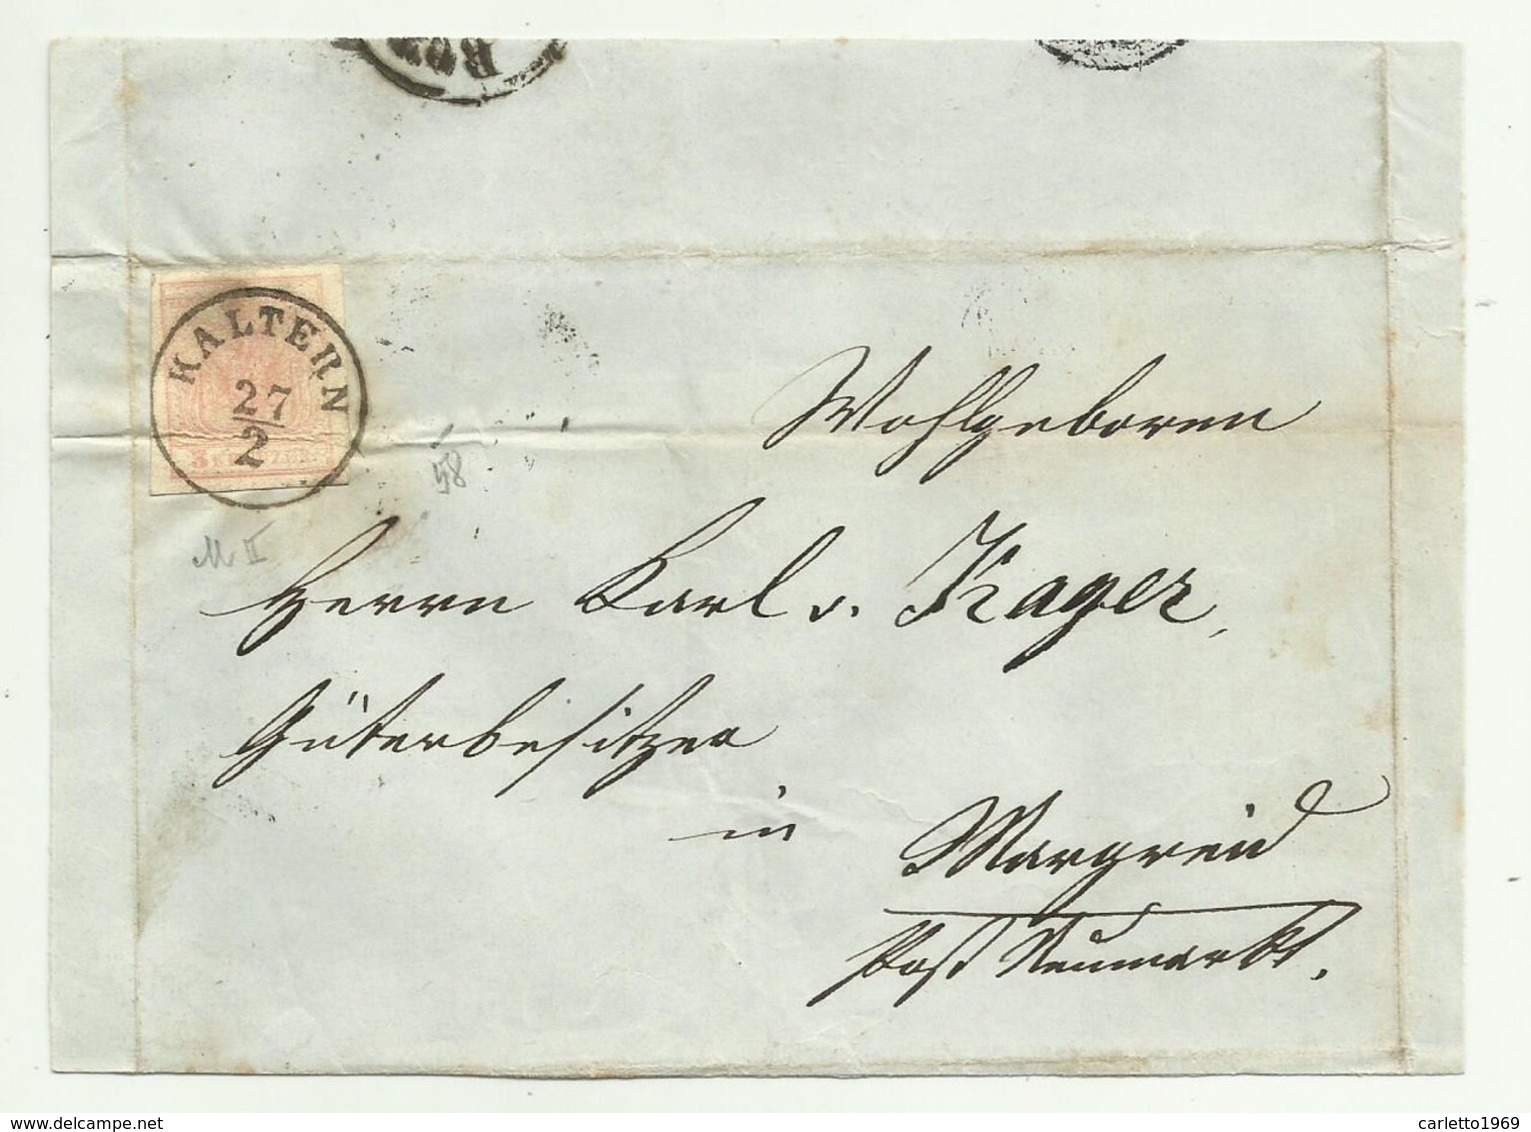 Boz
KALTERN
27
/
2
3 KREUZER
58
M II
Wohlgeboren
Herrn Karl v. Kager,
Güterbesitzer
in
Margreid
Post Neumarkt.
delcampe.net
carletto1969